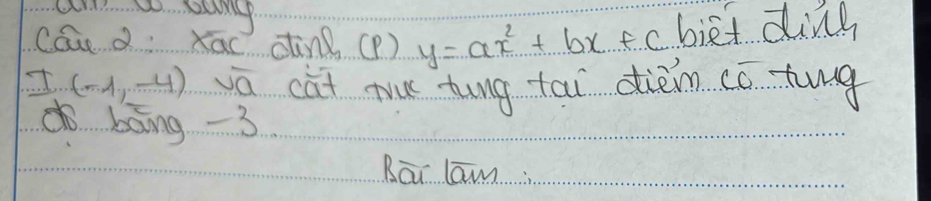 Câu 2: Xác định (P) y = ax² + bx + c biết đỉnh
I (-1, -4) và cắt trục tung tại điểm có tung
độ bằng -3.
Bài làm: